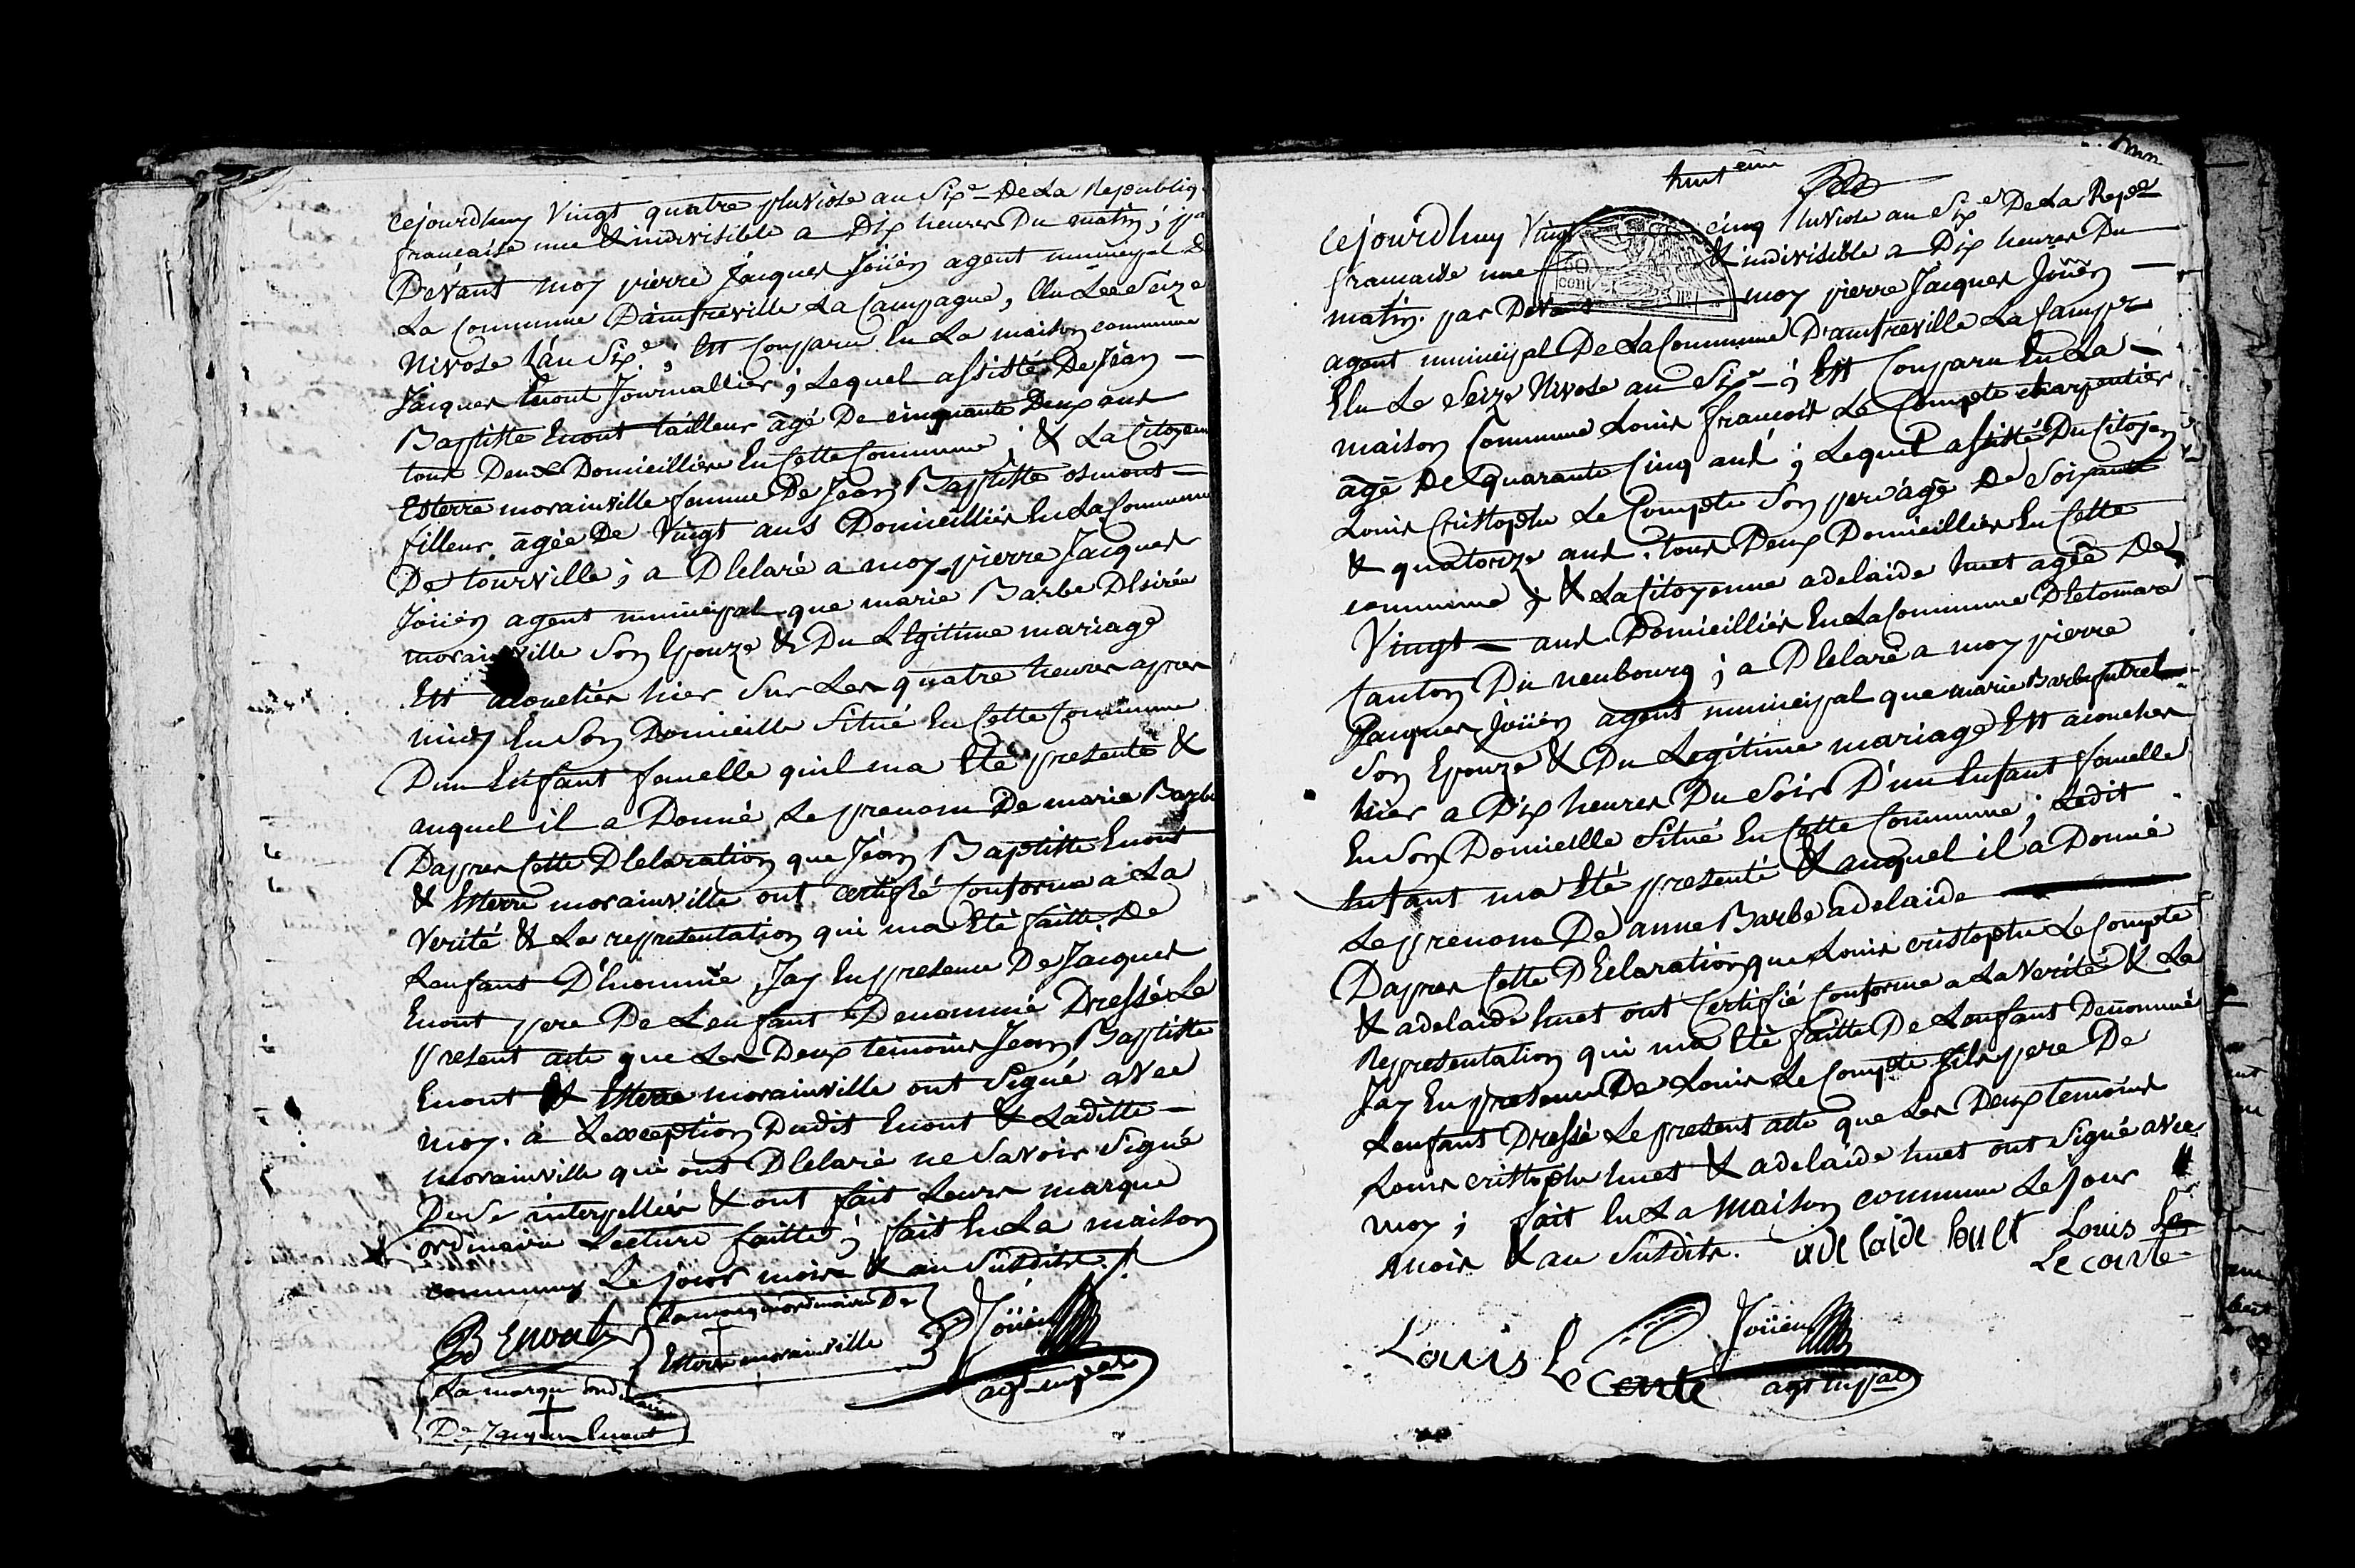 cejourdhuy Vingt quatre pluviose an Sixe De La Republiq
francaise une & indivisible a Dix heures Du matin ; pa
Dévant moy pierre Jacques Joüen agent municipal de
La Commune Damfreville La Campagne, Elu Lee Seize
Nivose Lán Sixe ; Est Comparu En La maison commune
Jacques Enout Journallier ; Lequel assisté De Jéan
Baptiste Enout tailleur âgé De cinquante Deux ans
tous Deux Domicilliés En Cette Commune ; & La Citoyenn
Esterre morainville femme De Jean Baptiste osmont
filleur. âgée De Vingt ans Domicilliés En La Commune
De tourville ; a Déclaré a moy pierre Jacques
Joüen agent municipal que marie Barbe Désirée
morainville Son Epouze & Du Légitime mariage
Est acouchée hier Sur Les quatre heures apres
midy En Son Domicille Situé En Cette Commune
Dun Enfant femelle quil ma Eté presenté &
auquel il a Donné Le prenom De marie Barbe
Dapres Cette Déclaration que Jéan Baptiste Enout
& Esterre morainville ont certifié Conforme a La
Verité & La representation qui ma Eté faitte De
Lenfant Dénommé, Jay En presence De Jacques
Enout pere De Lenfant Denommé Dressé Le
present acte que Les Deux temoins Jean Baptiste
Enout & Esterre morainville ont Signé avec
moy. à Lexception Dudit Enout & Laditte
morainville qui ont Déclaré ne Savoir Signé
De Se interpelliés & ont fait Leurs marque
ordinaire Lecture faitte ; fait En La maison
commune Le jour mois & an Susdits.
La marque ordinaire De
Esterre morainville
B Enout
Joüen
agt mpal
La marque ordinaire
De Jacques Enout
huiteme
cejourdhuy Vingt cinq Pluviose an Sixe De La Repe
francaise une & indivisible a Dix heures Du
50
cent
matin. par Devant moy pierre Jacques Joüen
agent municipal De La Commune D'amfreville La Campe
Elu Le Seize Nivose an Sixe ; Est Comparu En La
maison Commune Louis francois Le Compte charpentier
âgé De quarante Cinq ans ; Lequel assisté Du Citoyen
Louis Cristophe Le Compte Son pere âgé De Soixante
& quatorze ans. tous Deux Domicilliés En Cette
commune ; & La Citoyenne adelaide huet agée De
Vingt ans Domicilliés En La Commune Déctomare
Canton Du neubourg ; a Déclaré a moy pierre
Jacques Joüen agent municipal que marie Barbe
Son Epouze & Du Legitime mariage Est acouchee
hier a Dix heures Du Soir D'un Enfant femelle
En Son Domicille Situé En Cette Commune ; Ledit
Enfant ma Eté presenté & auquel il a Donné
Le prenom De anne Barbe adelaide
Dapres Cette Déclaration que Louis cristophe Le Compte
& adelaide huet ont Certifié Conforme a La Verité & La
Representation qui ma Eté faitte De Lenfant Denommé
Jay En presence De Louis Le Compte fils pere De
Lenfant Dressé Le present acte que Les Deux temoins
Louis cristophe huet & adelaide huet ont Signé avec
moy ; fait En La Maison commune Le Jour
Mois & an Susdits. adelaide huet Louis
Le conte
Louis Le Conte
Joüen
agt mpal